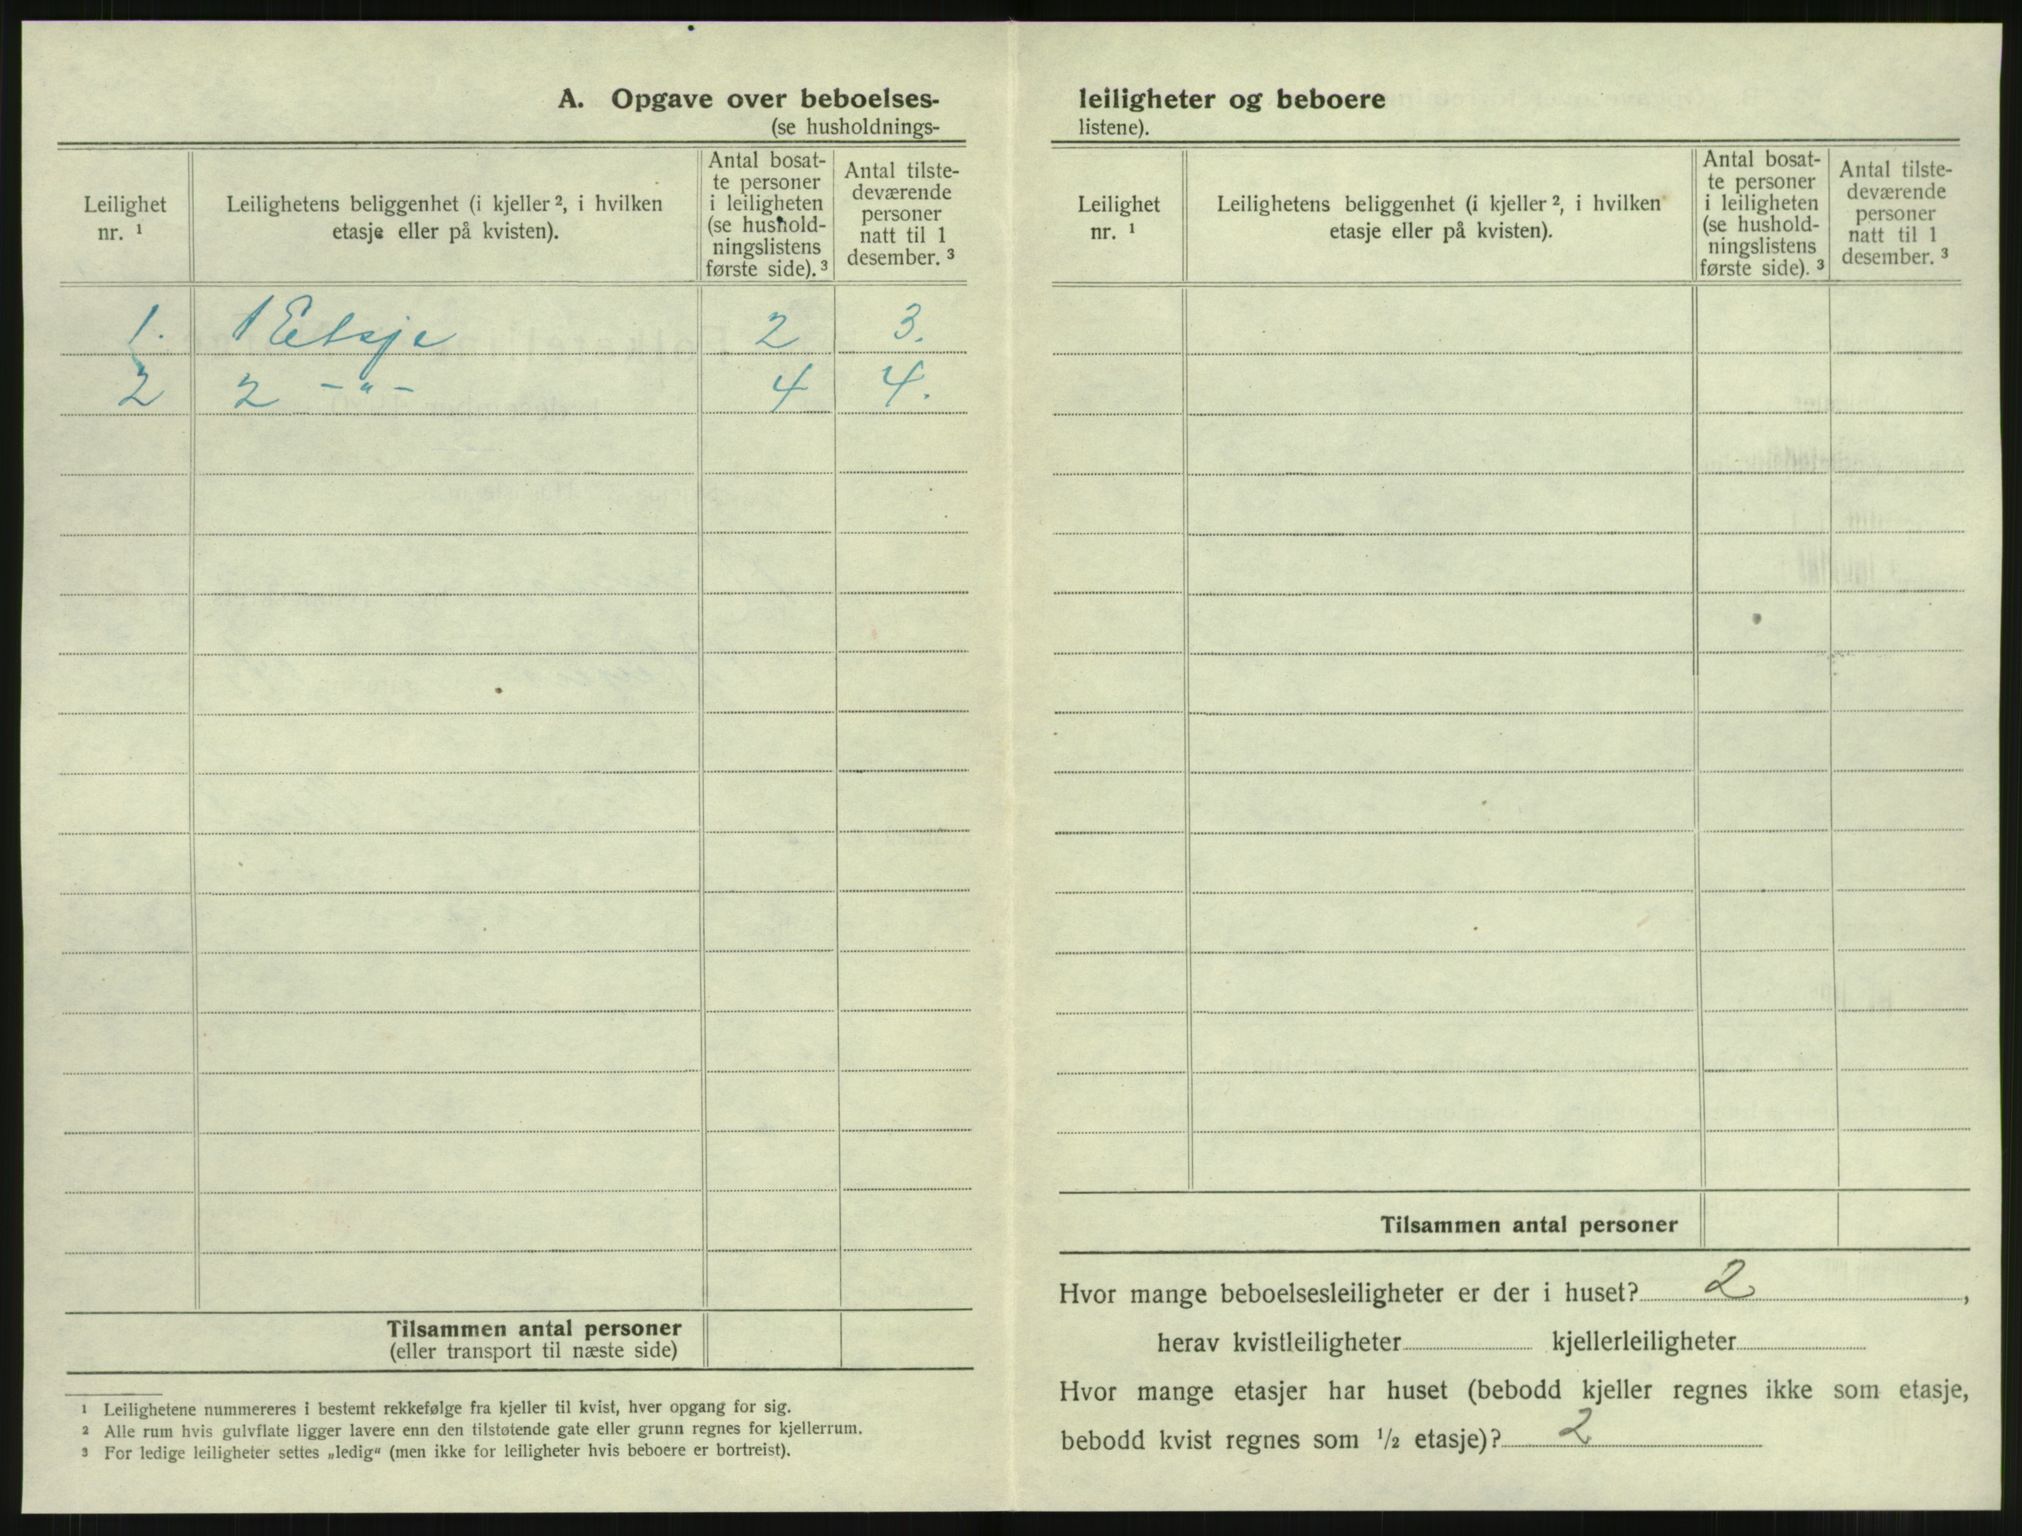 A. Opgave over beboelses-
(se husholdnings-
Leilighet
nr. 1
Leilighetens beliggenhet (i kjeller 2, i hvilken
etasje eller på kvisten).
Antal bosat-
te personer
i leiligheten
(se hushold-
ningslistens
første side). 3
Antal tilste-
deværende
personer
natt til 1
desember. 3
1. 1 Etsje 2 3.
2 2 -"- 4 4.
Tilsammen antal personer
(eller transport til næste side)
1 Leilighetene nummereres i bestemt rekkefølge fra kjeller til kvist, hver opgang for sig.
2 Alle rum hvis gulvflate ligger lavere enn den tilstøtende gate eller grunn regnes for kjellerrum.
3 For ledige leiligheter settes „ledig“ (men ikke for leiligheter hvis beboere er bortreist).
leiligheter og beboere
listene).
Leilighet
nr. 1
Leilighetens beliggenhet (i kjeller 2, i hvilken
etasje eller på kvisten).
Antal bosat-
te personer
i leiligheten
(se hushold-
ningslistens
første side). 3
Antal tilste-
deværende
personer
natt til 1
desember. 3
Tilsammen antal personer
Hvor mange beboelsesleiligheter er der i huset? 2,
herav kvistleiligheter kjellerleiligheter
Hvor mange etasjer har huset (bebodd kjeller regnes ikke som etasje,
bebodd kvist regnes som 1/2 etasje)? 2